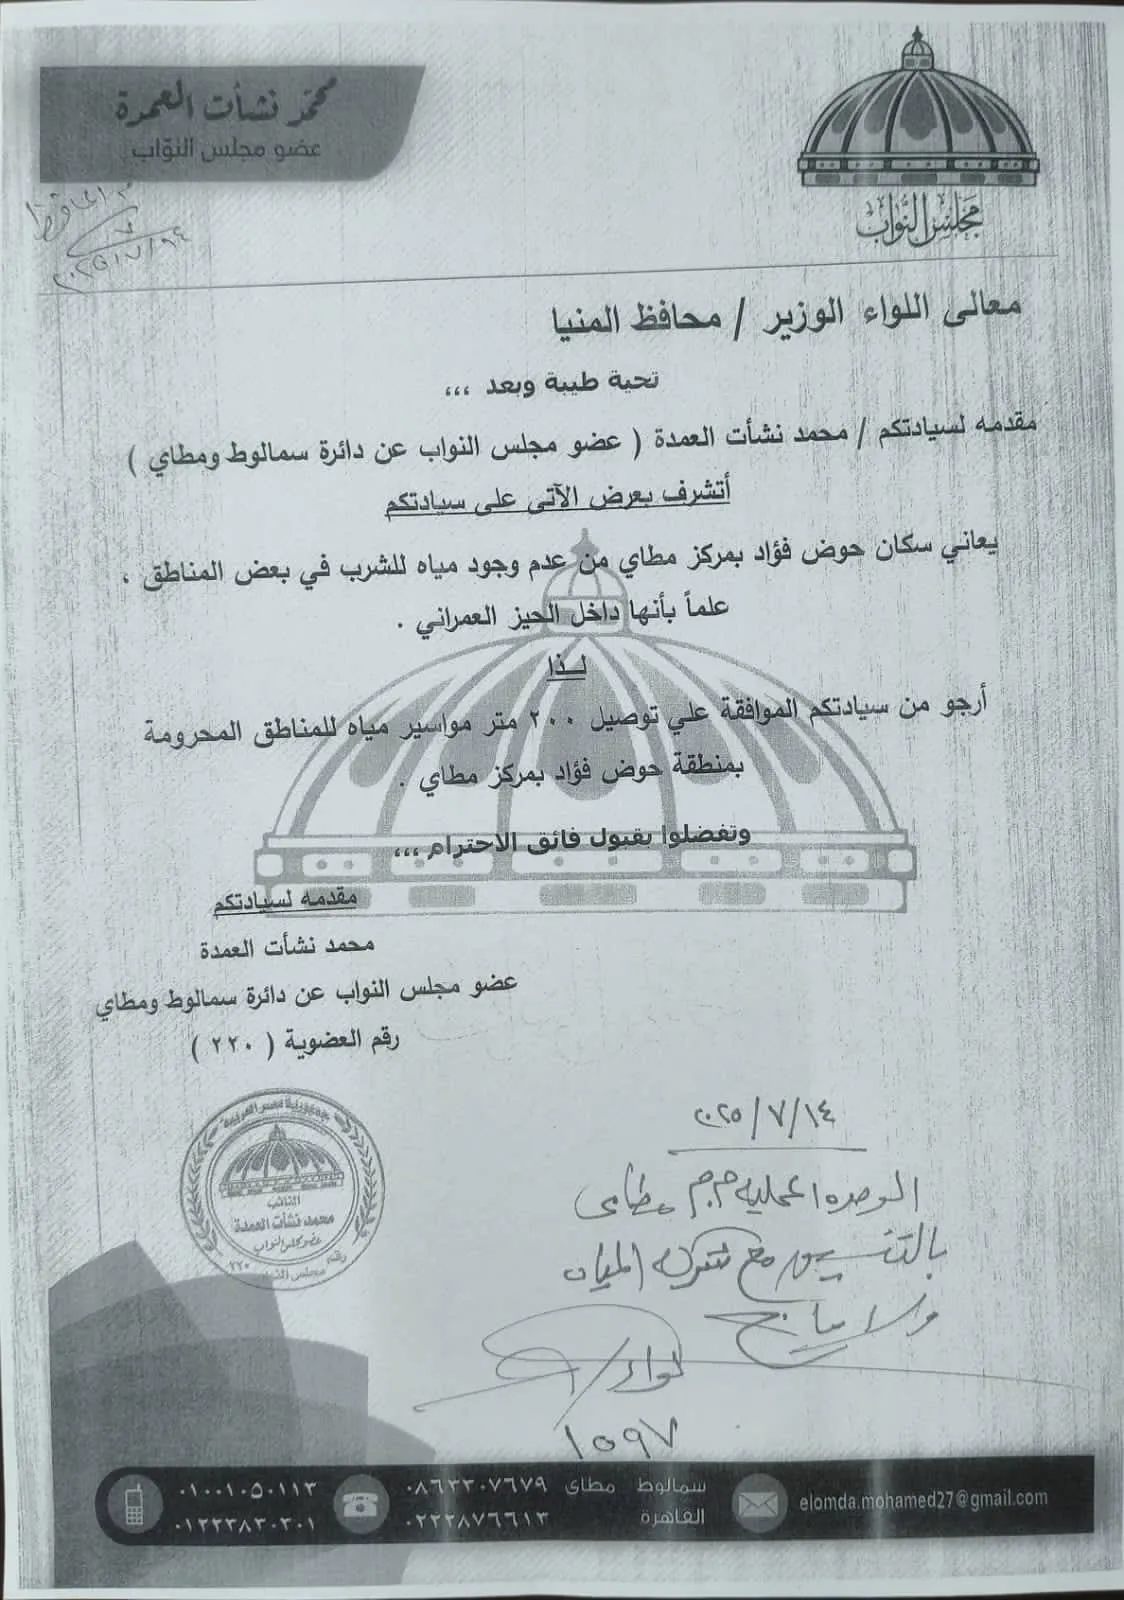 محمد نشأت العمدة
عضو مجلس النواب
مجلس النواب
معالى اللواء الوزير / محافظ المنيا
تحية طيبة وبعد ،،،
مقدمه لسيادتكم / محمد نشأت العمدة ( عضو مجلس النواب عن دائرة سمالوط ومطاي )
أتشرف بعرض الآتى على سيادتكم
يعاني سكان حوض فؤاد بمركز مطاي من عدم وجود مياه للشرب في بعض المناطق ،
علماً بأنها داخل الحيز العمراني .
لــذا
أرجو من سيادتكم الموافقة علي توصيل ٢٠٠ متر مواسير مياه للمناطق المحرومة
بمنطقة حوض فؤاد بمركز مطاي .
وتفضلوا بقبول فائق الاحترام ،،،
مقدمه لسيادتكم
محمد نشأت العمدة
عضو مجلس النواب عن دائرة سمالوط ومطاي
رقم العضوية ( ٢٢٠ )
جمهورية مصر العربية
النائب
محمد نشأت العمدة
عضو مجلس النواب
رقم ٢٢٠
مجلس النواب
٢٠٢٥/٧/١٤
الوحده المحليه م.م مطاى
بالتنسيق مع شركه المياه
لواء/
١٥٩٧
٠١٠٠١٠٥٠١١٣ ٠٨٦٢٣٠٧٦٧٩ سمالوط مطاي
٠١٢٢٣٨٣٠٣٠١ ٠٢٢٢٨٧٦٦١٣ القاهرة
elomda.mohamed27@gmail.com